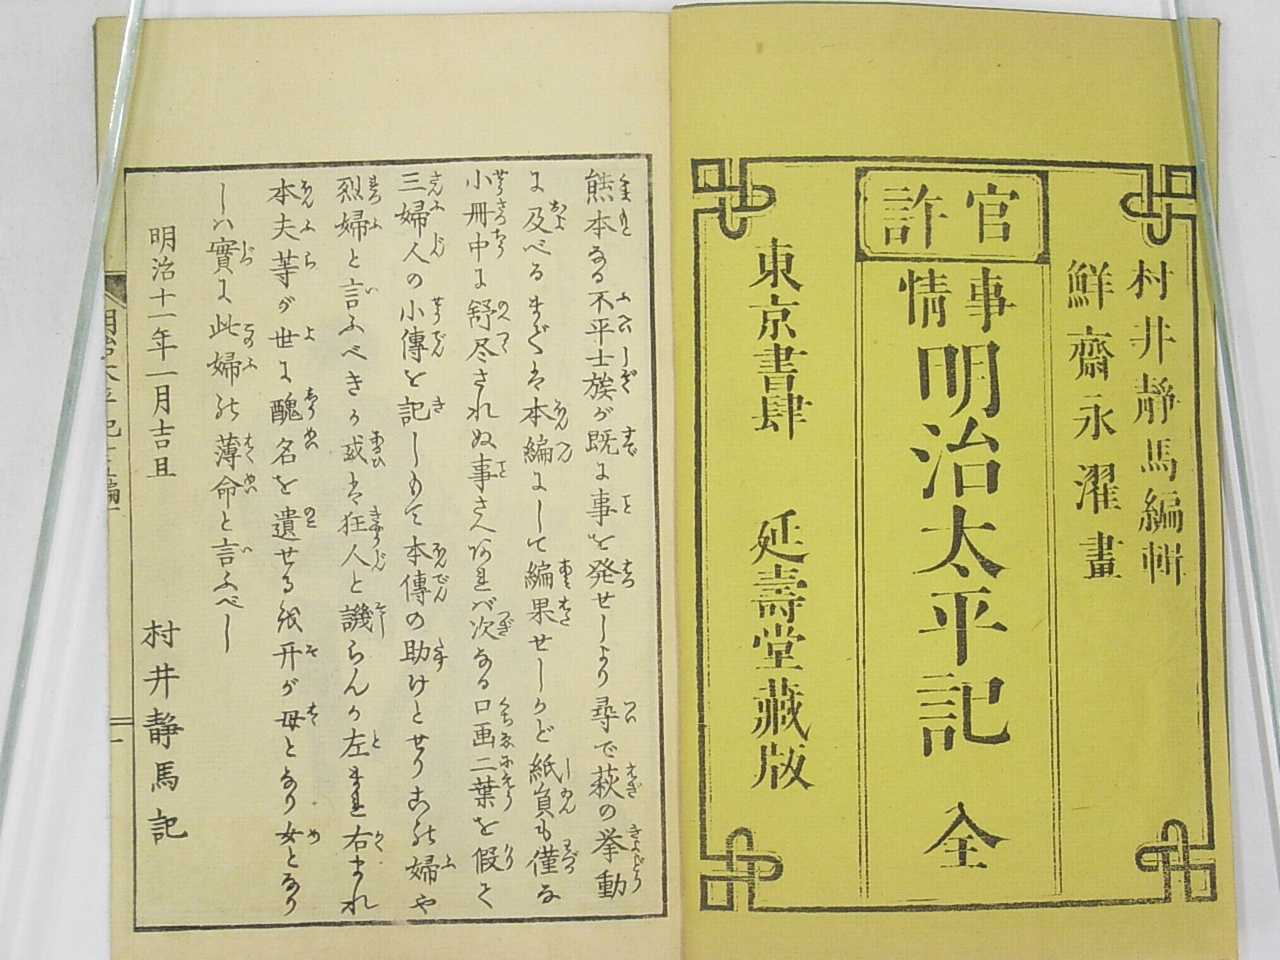 村井靜馬編輯
鮮齋永濯畫
官許
事情
明治太平記 全
東京書肆 延壽堂藏版
熊本なる不平士族が既に事を発せしより尋で萩の挙動
に及べる
本編にして編果せしかど紙員も僅な
小冊中に舒尽されぬ事さへあれバ次なる口画二葉を假て
三婦人の小傳を記しもて本傳の助けとせりこの婦や
烈婦と言ふべきか或は狂人と譏らんか左まれ右まれ
本夫等が世に醜名を遺せる
母となり女となり
しハ實に此婦の薄命と言ふべし
明治十一年一月吉旦
村井静馬記